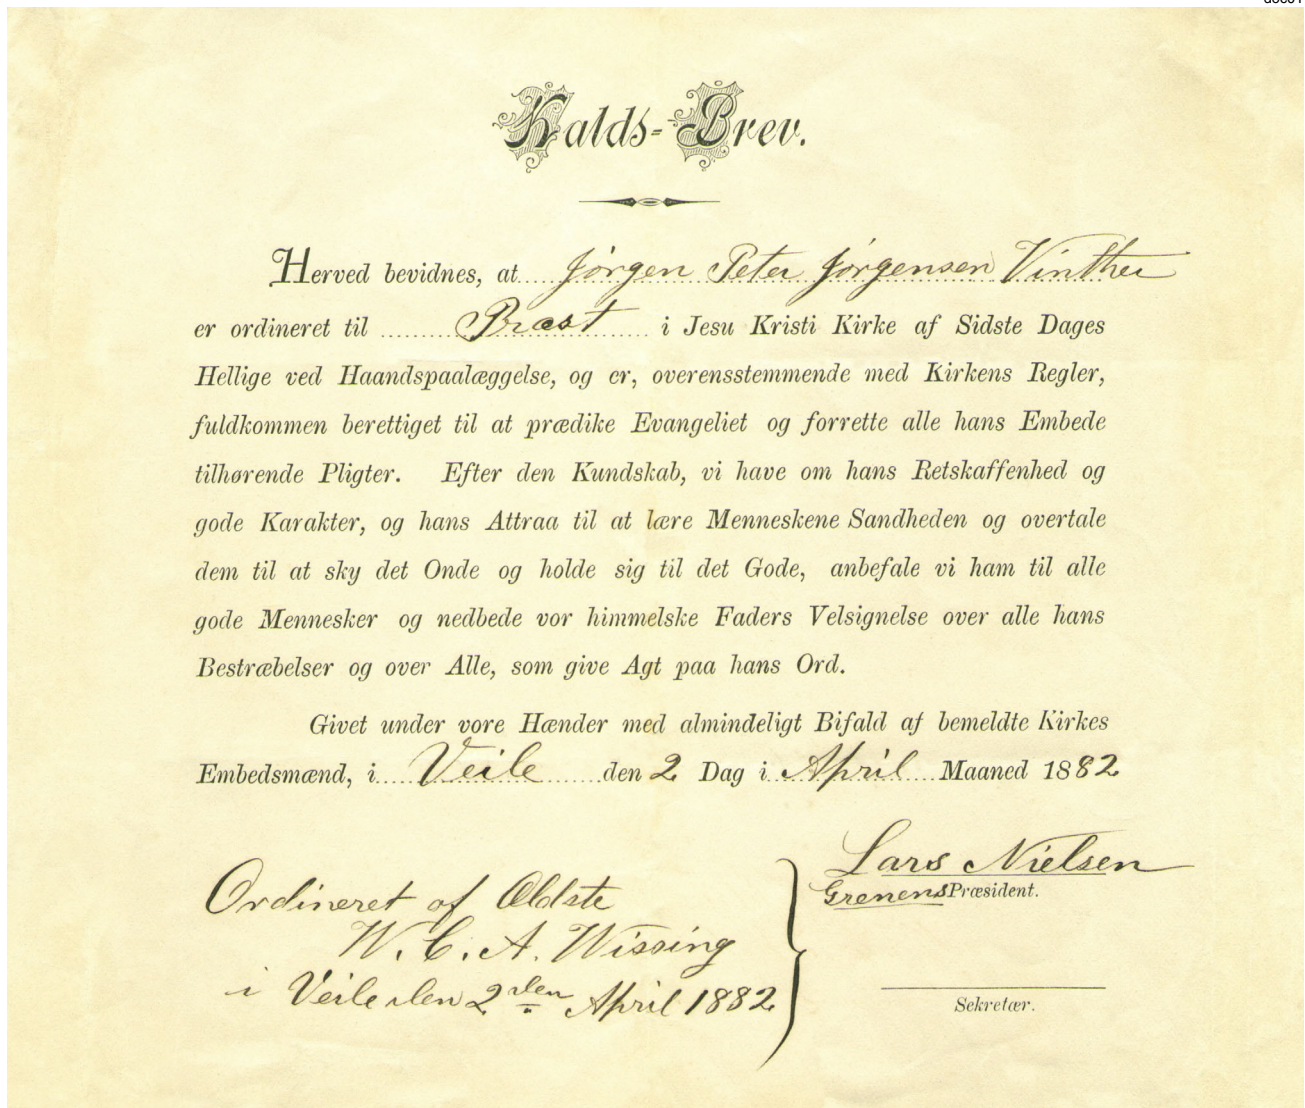 Kalds-Brev.
Herved bevidnes, at Jørgen Peter Jørgensen Vinther
er ordineret til Præst i Jesu Kristi Kirke af Sidste Dages
Hellige ved Haandspaalæggelse, og er, overensstemmende med Kirkens Regler,
fuldkommen berettiget til at prædike Evangeliet og forrette alle hans Embede
tilhørende Pligter. Efter den Kundskab, vi have om hans Retskaffenhed og
gode Karakter, og hans Attraa til at lære Menneskene Sandheden og overtale
dem til at sky det Onde og holde sig til det Gode, anbefale vi ham til alle
gode Mennesker og nedbede vor himmelske Faders Velsignelse over alle hans
Bestræbelser og over Alle, som give Agt paa hans Ord.
Givet under vore Hænder med almindeligt Bifald af bemeldte Kirkes
Embedsmænd, i Veile den 2 Dag i April Maaned 1882
Lars Nielsen
Grenens Præsident.
Ordineret af Ældste
W. C. A. Wissing
i Veile den 2den April 1882
Sekretær.